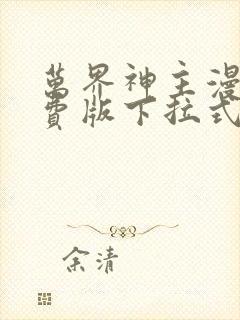 萬界神主漫
費版下拉式
余清